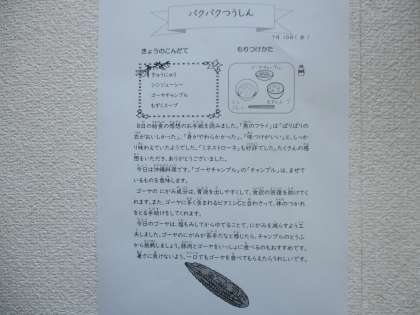 パクパクつうしん
7月10日（金）
きょうのこんだて
もりつけかた
ぎゅうにゅう
シシジューシー
ゴーヤチャンプル
もずくスープ
8日の給食の感想のお手紙を読みました。「魚のフライ」は「ぱりぱりの
衣がおいしかった」、「身がやわらかかった」、「味つけがいい」と、しっか
り味わえていたようでした。「ミネストローネ」も好評でした。たくさんの感
想をいただき、ありがとうございました。
今日は沖縄料理です。「ゴーヤチャンプル」の「チャンプル」は、まぜて
いるものを意味します。
ゴーヤの にがみ成分は、胃液を出しやすくして、食欲の回復を助けてく
れます。また、ゴーヤに多く含まれるビタミンCと合わさって、体のつかれ
をとる手助けをしてくれます。
今日のゴーヤは、塩もみしてからゆでることで、にがみを減らすよう工
夫しました。ゴーヤのにがみが苦手だなと感じたら、チャンプルのとうふ
から挑戦しましょう。豚肉とゴーヤをいっしょに食べるのもおすすめです。
暑さに負けないよう、一口でもゴーヤを食べてもらえたらうれしいです。